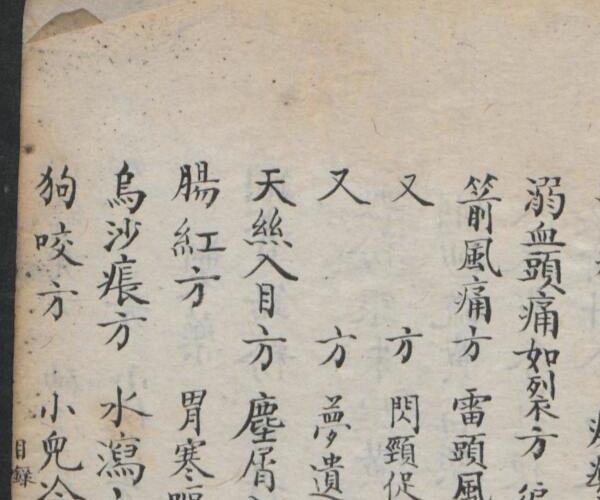 溺血頭痛如裂方
箭風痛方 雷頭風
又 方 閃頸促
又 方 夢遺
天絲入目方 塵屑
腸紅方 胃寒嘔
烏沙痕方 水瀉
狗咬方 小兒冷
目錄